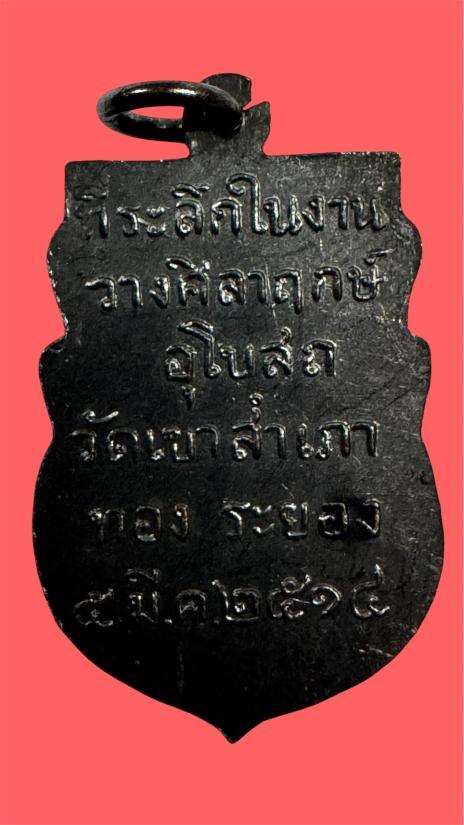 ที่ระลึกในงาน
วางศิลาฤกษ์
อุโบสถ
วัดเขาสำเภา
ทอง ระยอง
๕ มี.ค.๒๕๑๕